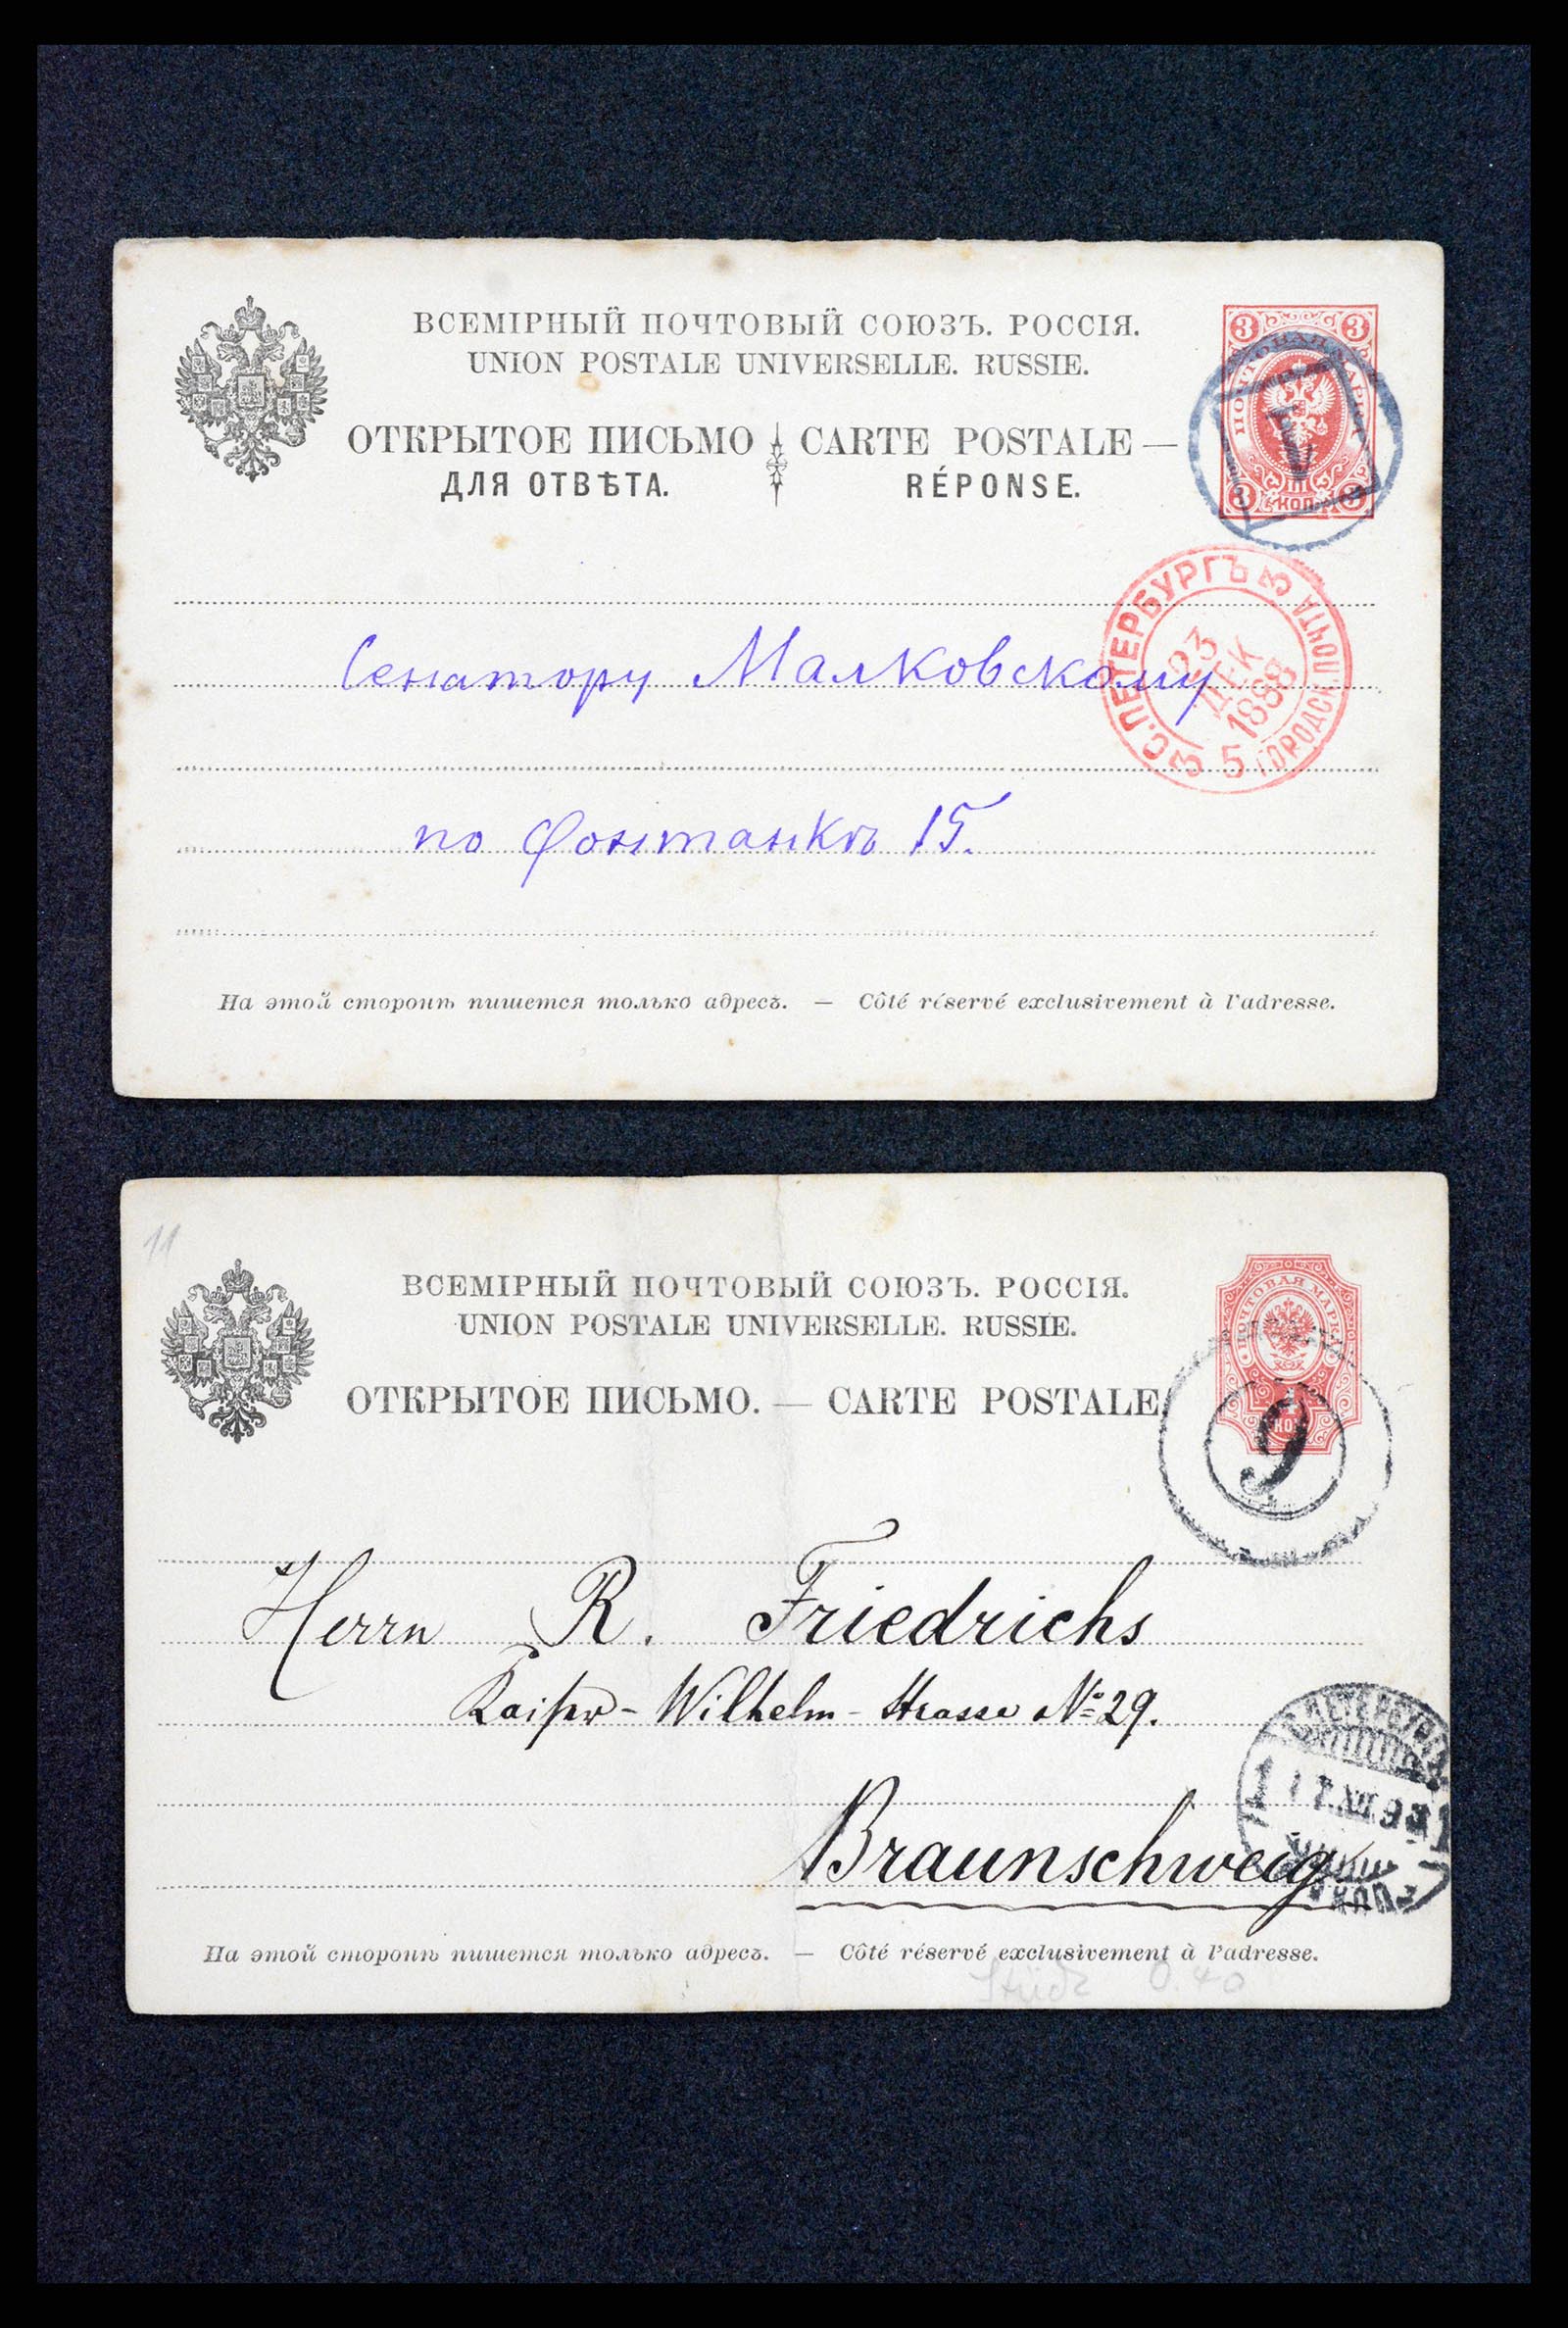 ВСЕМІРНЫЙ ПОЧТОВЫЙ СОЮЗЪ. РОССІЯ.
UNION POSTALE UNIVERSELLE. RUSSIE.
ОТКРЫТОЕ ПИСЬМО CARTE POSTALE —
ДЛЯ ОТВѢТА. RÉPONSE.
3 3
ПОЧТОВАЯ МАРКА
3 КОП. 3
С.ПЕТЕРБУРГЪ 3
23
ДЕК
1888
5 ГОРОДСК. ПОЧТА
Сенатору Малковскому
по Фонтанкѣ 15.
На этой сторонѣ пишется только адресъ. — Côté réservé exclusivement à l'adresse.
11
ВСЕМІРНЫЙ ПОЧТОВЫЙ СОЮЗЪ. РОССІЯ.
UNION POSTALE UNIVERSELLE. RUSSIE.
ОТКРЫТОЕ ПИСЬМО. — CARTE POSTALE
ПОЧТОВАЯ МАРКА
4
КОП
9
Herrn R. Friedrichs
Kaiser-Wilhelm-Strasse № 29.
Braunschweig
На этой сторонѣ пишется только адресъ. — Côté réservé exclusivement à l'adresse.
0.40